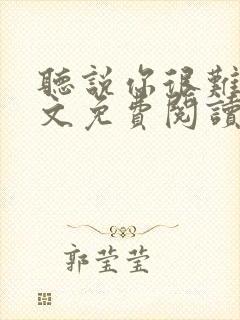 聽說你很難
文免費閱讀
郭莹莹